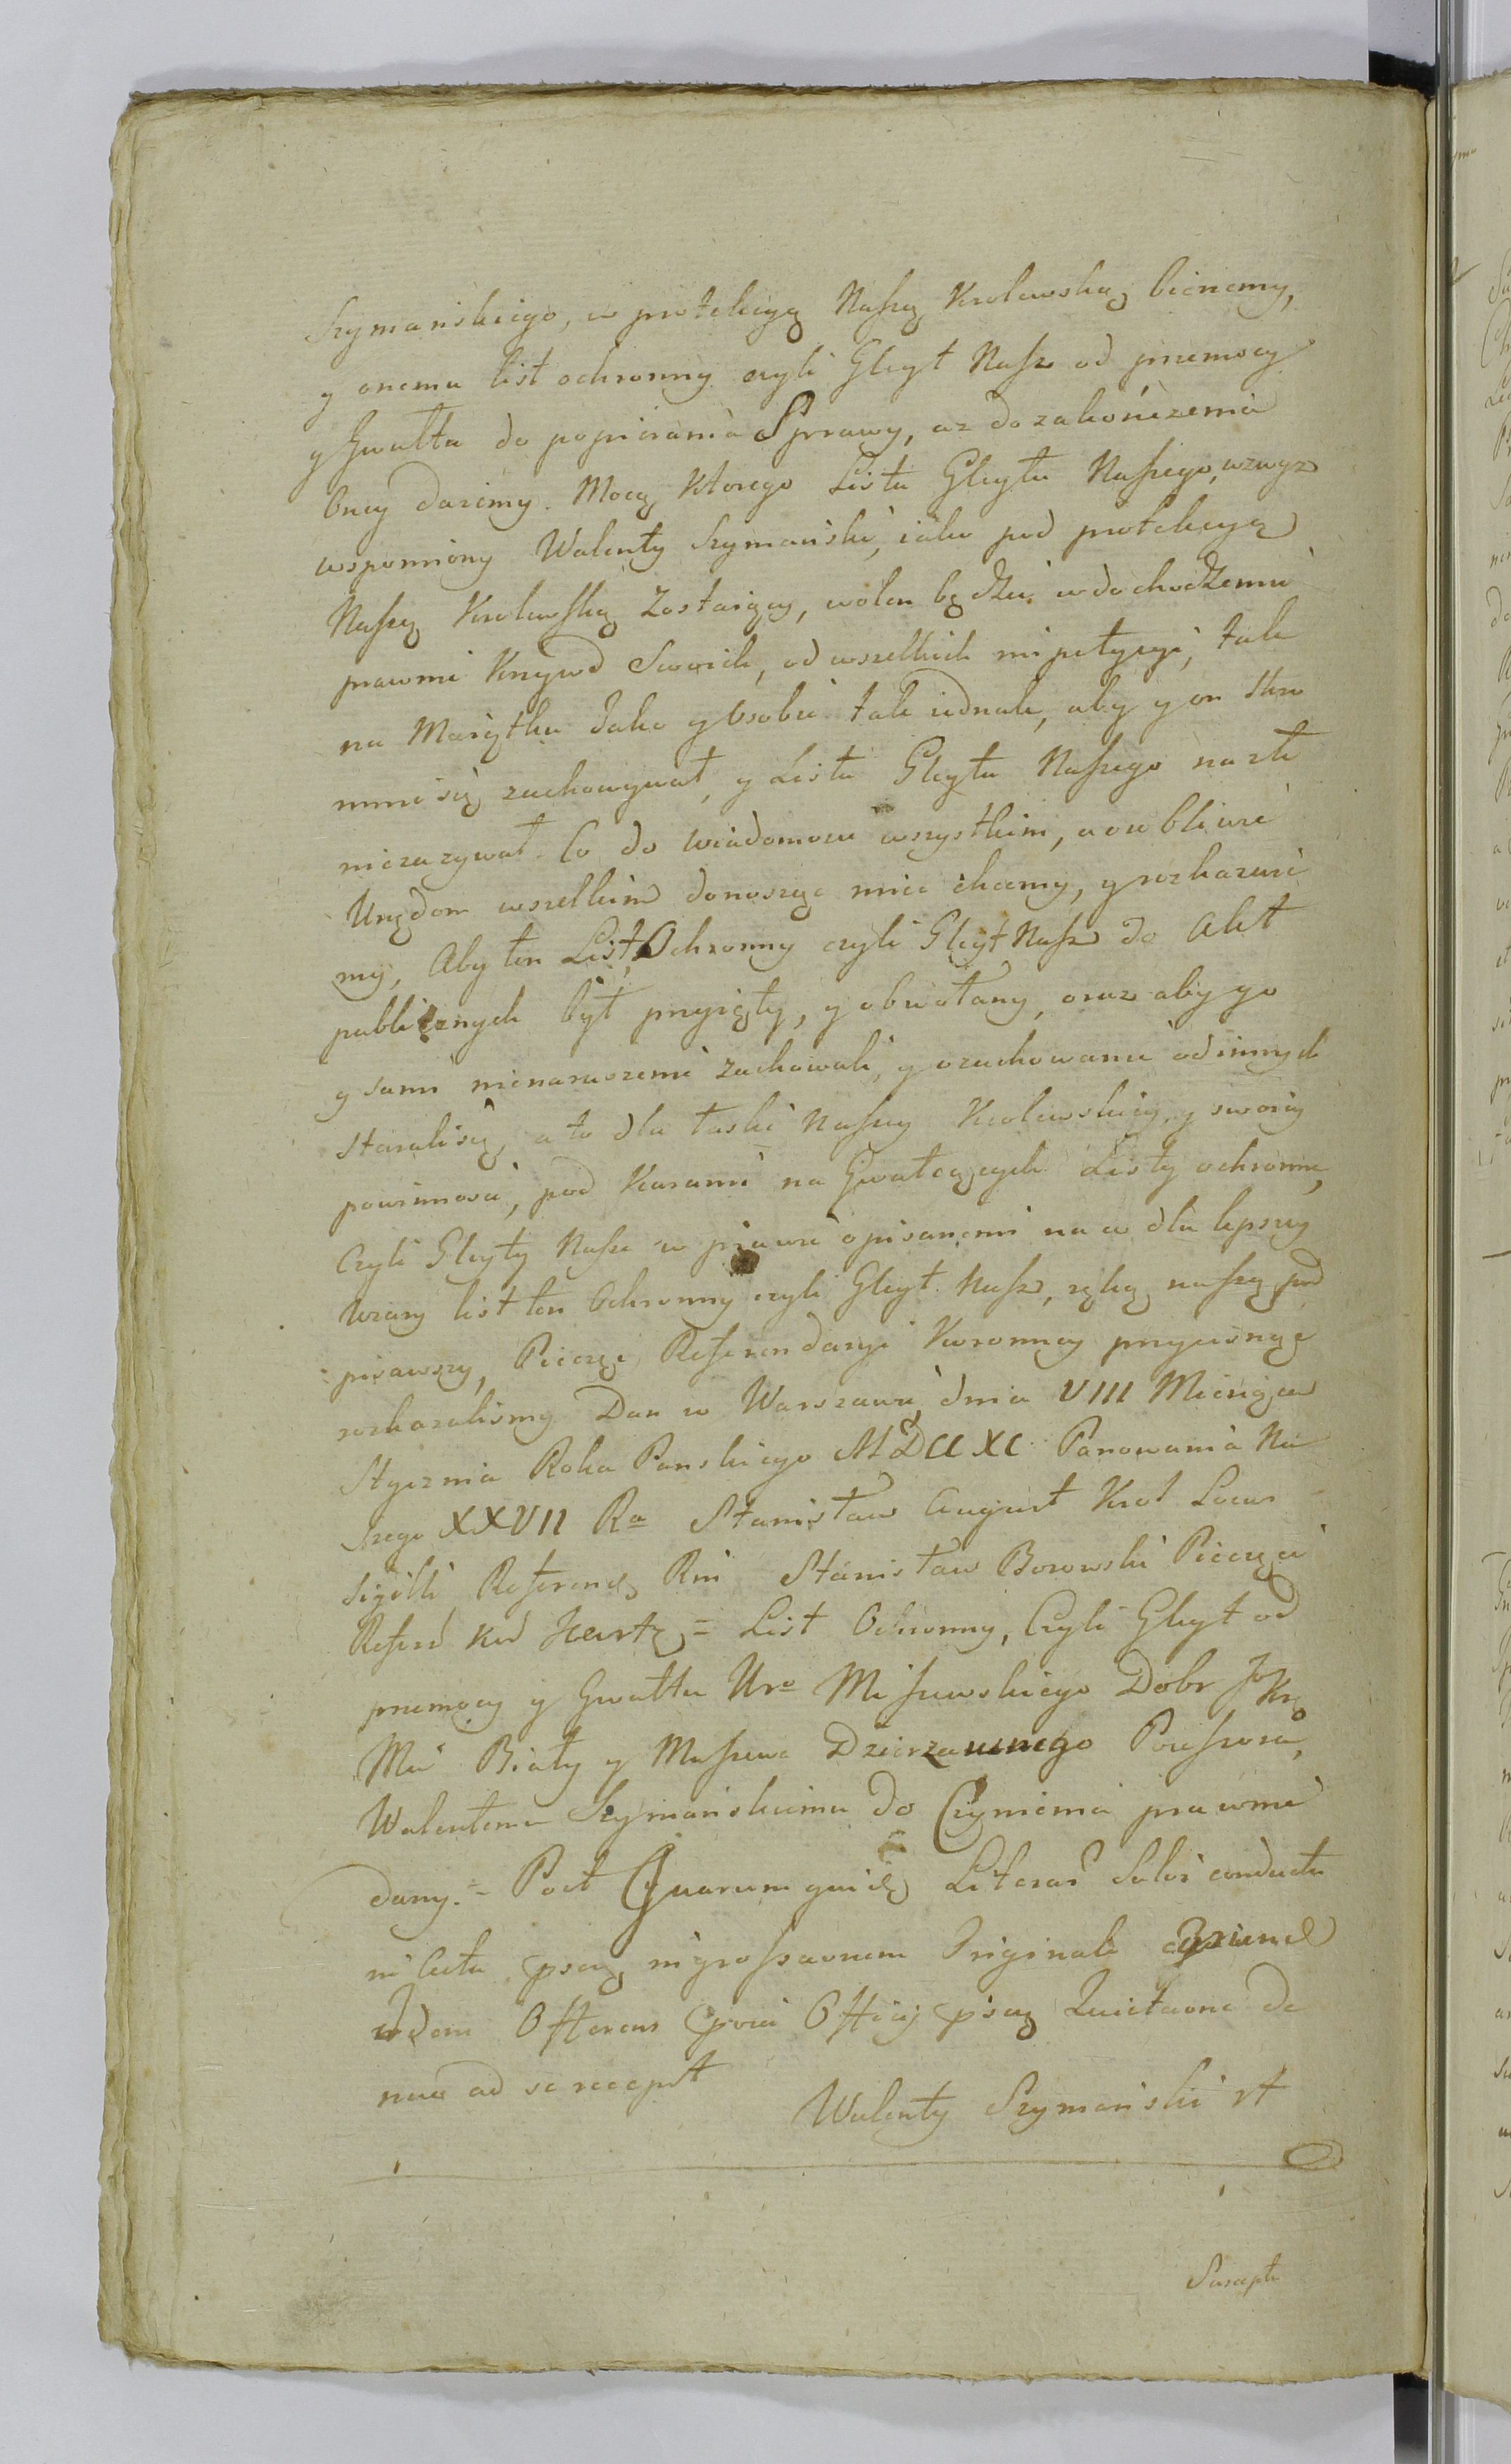 Szymanskiego, w protekcyą Naszą Krolewską bierzemy,
y onemu list ochronny czyli Gleyt Nasz od przemocy
y Gwałtu do popierania Sprawy, az do zakończenia
oney daiemy. Mocą ktorego Listu Gleytu Naszego, wzwyz
wspomniony Walenty Szymański, iako pod protekcyą
Naszą Krolewską Zostaiący, wolen będzie w dochodzeniu
prawnie Krzywd Swoich, od wszelkich impetycyi, tak
na Maiątku Jako y Osobie tak iednak, aby y on Skro
mnie się zachowywał, y Listu Gleytu Naszego na złe
niezazywał. Co do wiadomosci wszystkim, a osobliwie
Urzędom wszelkim donosząc miec chcemy, y rozkazuie
my, Aby ten List Ochronny czyli Gleyt Nasz do Akt
publicznych był przyięty, y obwołany, oraz aby go
y sami nienaruszenie zachowali, y o zachowanie od innych
starali się, a to dla łaski Naszey Krolewskiey, y swoiey
powinnosci, pod Karami na Gwałcących Listy ochronne,
Czyli Gleyty Nasze w prawie opisanemi na co dla lepszey
wiary list ten Ochronny czyli Gleyt Nasz, ręką naszą pod
pisawszy, Pieczęć Referendaryi Koronney przycisnąć
rozkazalismy Dan w Warszawie, dnia VIII Miesiąca
Stycznia Roku Panskiego MDCCXC Panowania Na
szego XXVII Ra Stanisław August Krol Locus
Sigilli Referend Rni Stanisław Borowski Pieczęci
Refend Kor = List Ochronny, Czyli Gleyt od
przemocy y Gwałtu Uro Miszewskiego Dobr JoKr
Mci Biały y Maszewa Dzierzawnego Possessora,
Walentemu Szymańskiemu do Czynienia prawnie
dany. = Post Quarum quid Literar Salvi conductu
in Acta psen ingrossaonem Originale
Idem Offerens Officij psen Quietaone de
nuo ad se recepit
Walenty Szymański
Suscepta